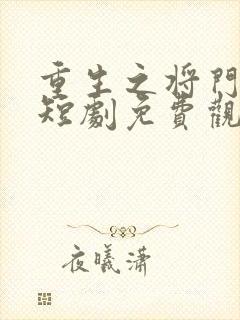 重生之将門
短劇免費觀
夜曦潇